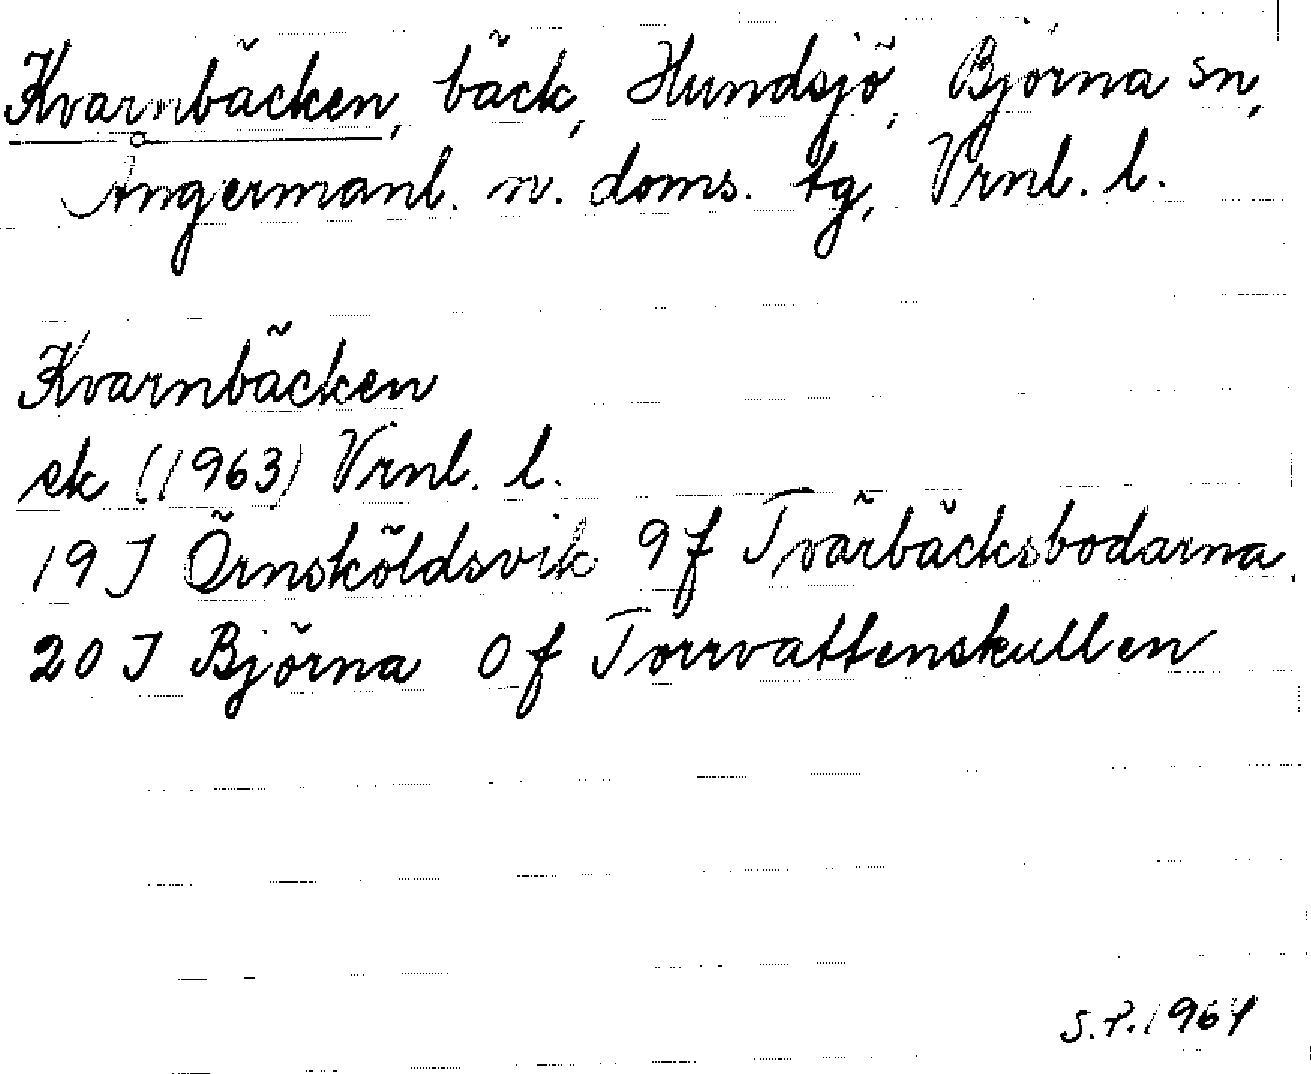 Kvarnbäcken, bäck, Hundsjö, Björna sn,
Ångermanl. n. doms. tg, Vrnl. l.
Kvarnbäcken
ek (1963) Vrnl. l.
19 J Örnsköldsvik 9 f Tvärbäcksbodarna.
20 J Björna 0 f Torrvattenskullen
S.P. 1964